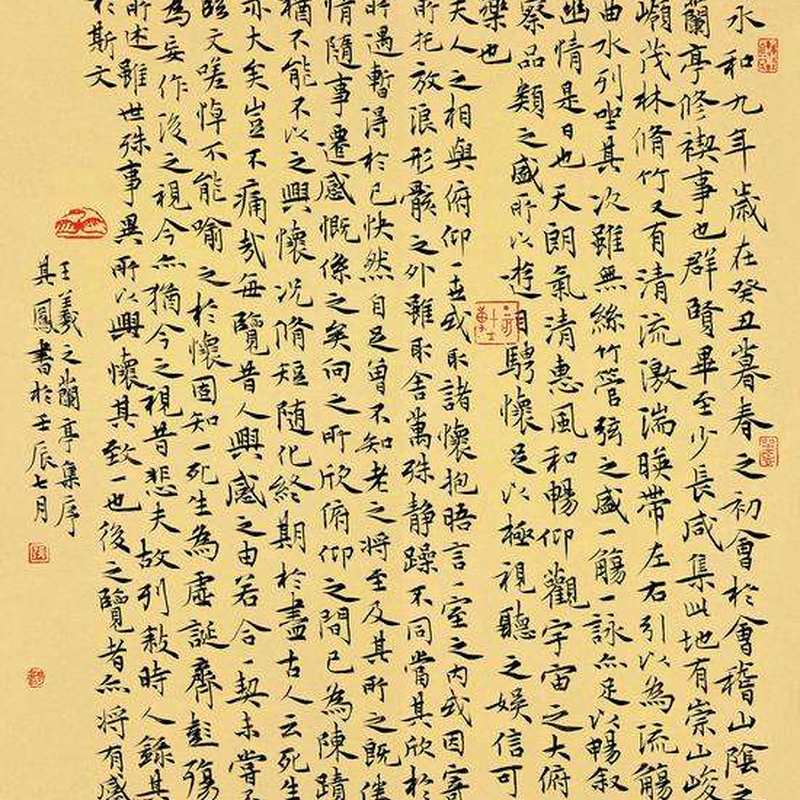 永和九年歲在癸丑暮春之初會於會稽山陰之
蘭亭修禊事也群賢畢至少長咸集此地有崇山峻
嶺茂林脩竹又有清流激湍暎帶左右引以為流觴
曲水列坐其次雖無絲竹管弦之盛一觴一詠亦足以暢叙
幽情是日也天朗氣清惠風和暢仰觀宇宙之大俯
察品類之盛所以遊目騁懷足以極視聽之娛信可
樂也
夫人之相與俯仰一世或取諸懷抱晤言一室之內或因寄
所托放浪形骸之外雖取舍萬殊静躁不同當其欣於
所遇暫得於己快然自足曾不知老之將至及其所之既倦
情隨事遷感慨係之矣向之所欣俯仰之間已為陳蹟
猶不能不以之興懷況脩短随化終期於盡古人云死生
亦大矣豈不痛哉每覽昔人興感之由若合一契未嘗不
臨文嗟悼不能喻之於懷固知一死生為虛誕齊彭殤
為妄作後之視今亦猶今之視昔悲夫故列敘時人錄其
所述雖世殊事異所以興懷其致一也後之覽者亦將有感
於斯文
王羲之蘭亭集序
其鳳書於壬辰七月